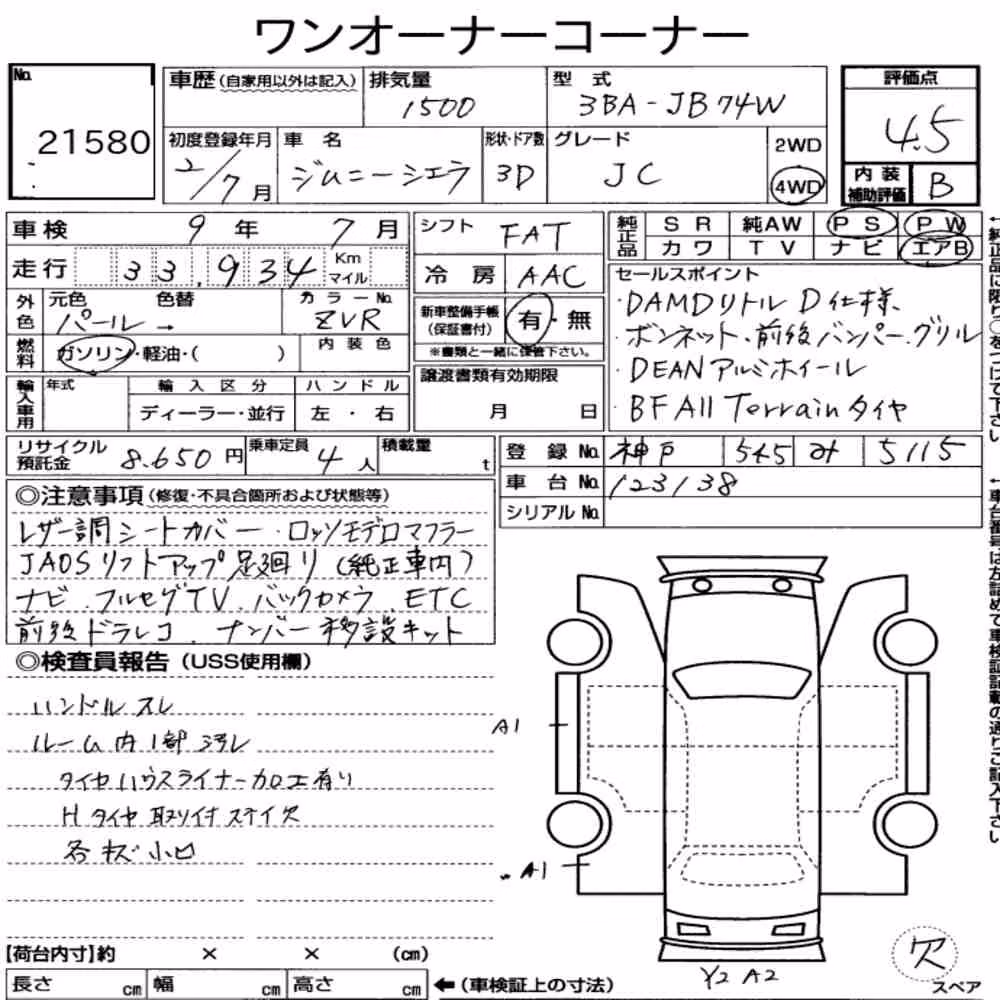 ワンオーナーコーナー
No. 21580
車歴(自家用以外は記入) 排気量 1500 型式 3BA-JB74W
初度登録年月 2/7月 車名 ジムニーシエラ 形状・ドア数 3D グレード JC 2WD 4WD
評価点 4.5
内装補助評価 B
車検 9年 7月
走行 33,934 Km マイル
外色 元色 パール→ 色替 カラーNo. ZVR
内装色
燃料 ガソリン・軽油・( )
輸入車用 年式 輸入区分 ディーラー・並行 ハンドル 左・右
シフト FAT
冷房 AAC
新車整備手帳(保証書付) 有・無
※書類と一緒に保管下さい。
譲渡書類有効期限 月 日
純正品 SR 純AW PS PW
カワ TV ナビ エアB
セールスポイント
・DAMDリトルD仕様、
・ボンネット、前後バンパー、グリル
・DEANアルミホイール
・BF All Terrainタイヤ
リサイクル預託金 8.650円 乗車定員 4人 積載量 t
登録No. 神戸 545 み 5115
車台No. 123138
シリアルNo.
◎注意事項(修復・不具合箇所および状態等)
レザー調シートカバー・ロッソモデロマフラー
JAOSリフトアップ足廻り(純正車内)
ナビ、フルセグTV、バックカメラ、ETC
前後ドラレコ、ナンバー移設キット
◎検査員報告(USS使用欄)
ハンドルスレ
ルーム内1部汚レ
タイヤハウスライナー加工有り
Hタイヤ取り付ステイ欠
各キズ小凹
A1
A1
Y2 A2
欠
スペア
【荷台内寸】約 × × (cm)
長さ cm 幅 cm 高さ cm ←(車検証上の寸法)
←純正品に限り○をつけて下さい
←車台番号は左詰めで車検証記載の通りご記入下さい